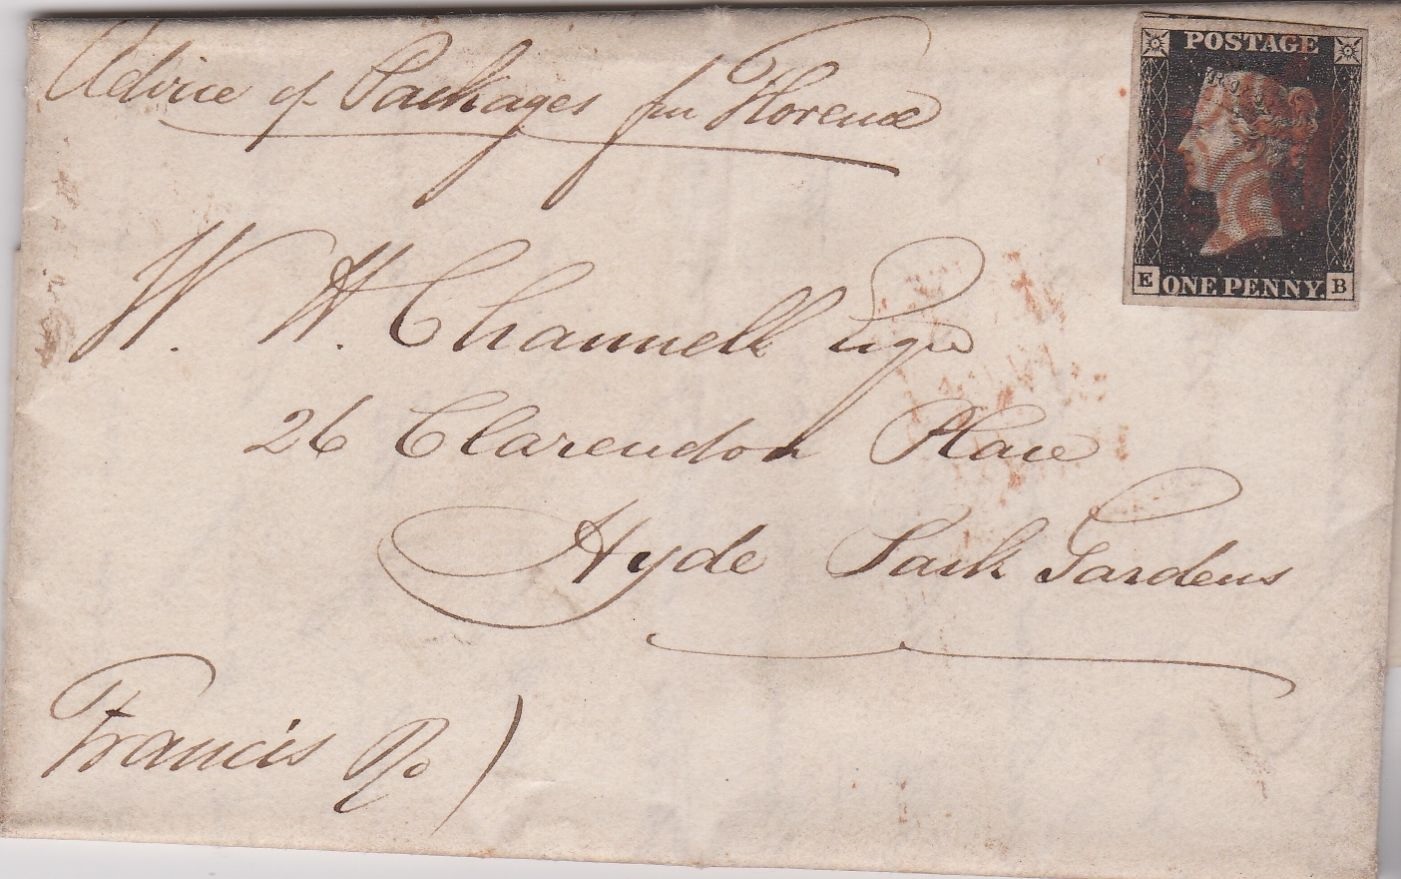 Advice of Packages fm Florence
POSTAGE
W. H. Channell Esqre
26 Clarendon Place
Hyde Park Gardens
E ONE PENNY. B
Francis